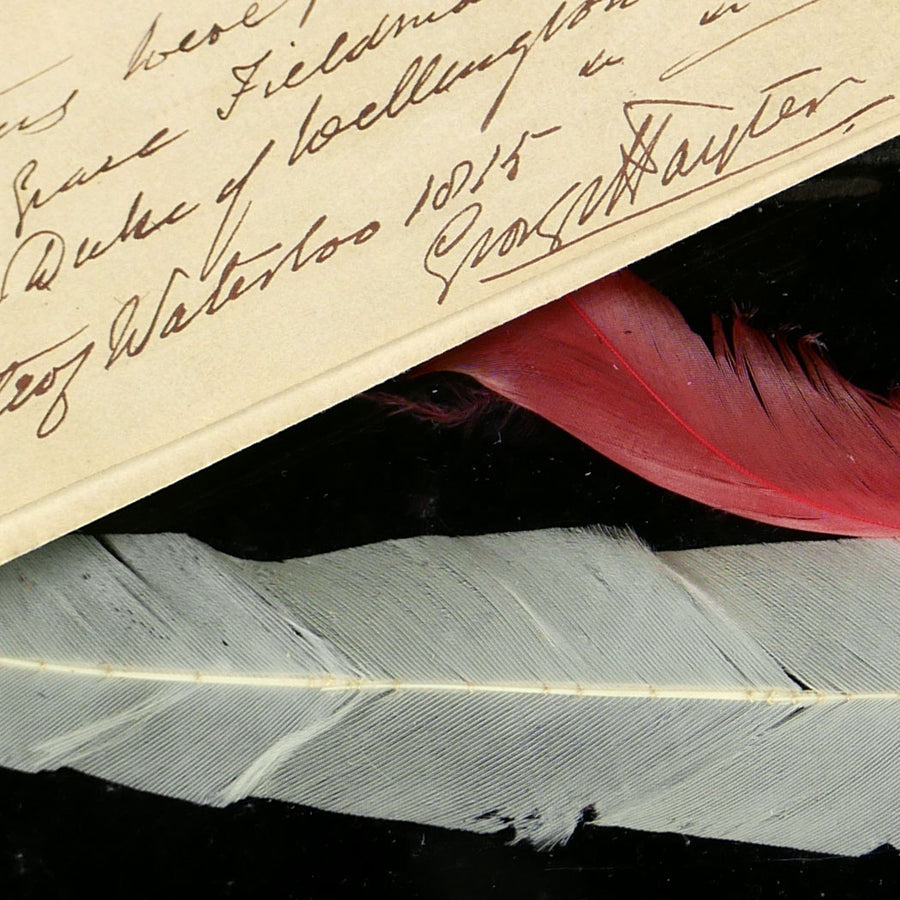 were
Grace Fieldma
Duke of Wellington " "
of Waterloo 1815
George Hayter